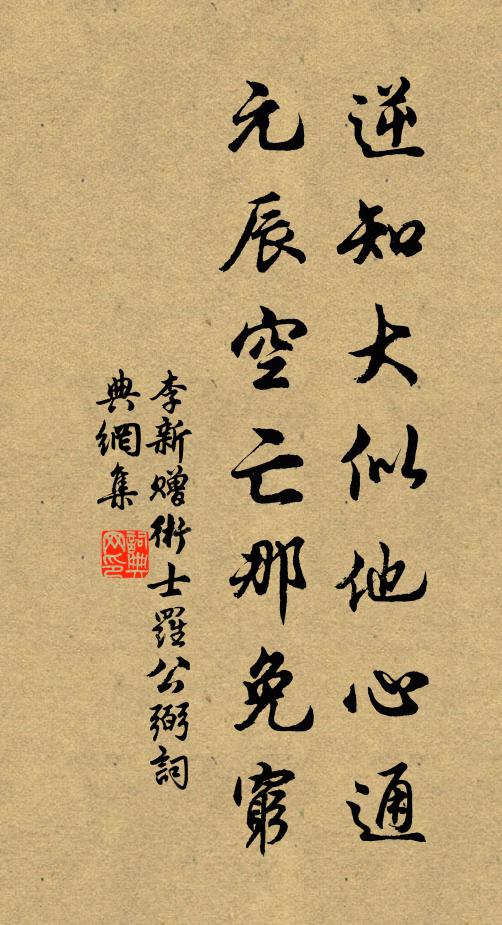 逆知大似他心通
元辰空亡那免窮
李新贈術士羅公弼詞
典網集
詞典
网印